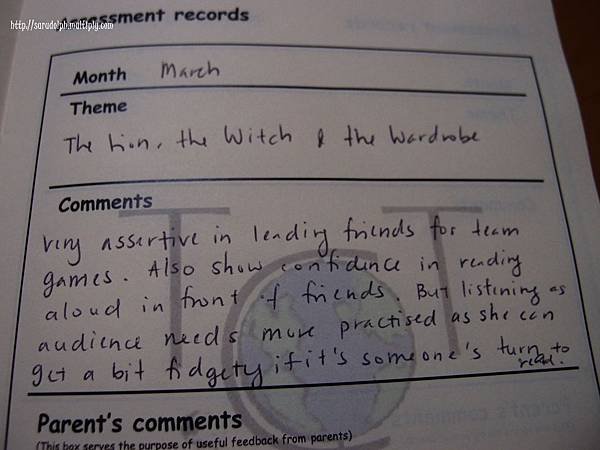 http://sarudolph.multiply.com
Assessment records
Month March
Theme
The Lion, the Witch & the Wardrobe
Comments
Very assertive in leading friends for team
games. Also show confidence in reading
aloud in front of friends. But listening as
audience needs more practised as she can
get a bit fidgety if it's someone's turn to
read.
Parent's comments
(This box serves the purpose of useful feedback from parents)